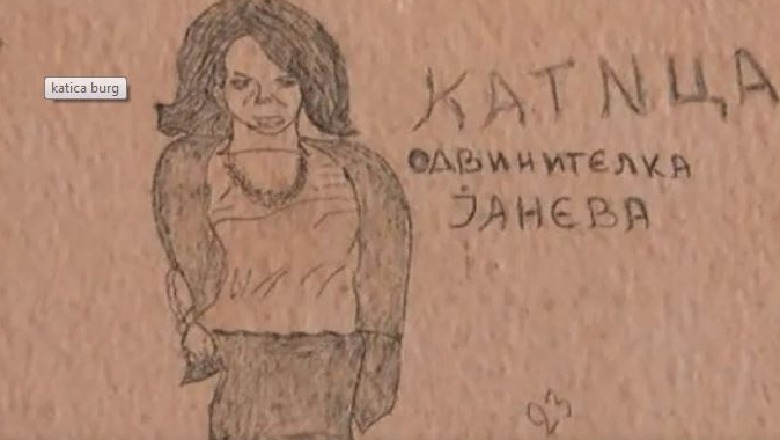 katica burg
КАТИЦА
ОДВИНИТЕЛКА
ЈАНЕВА